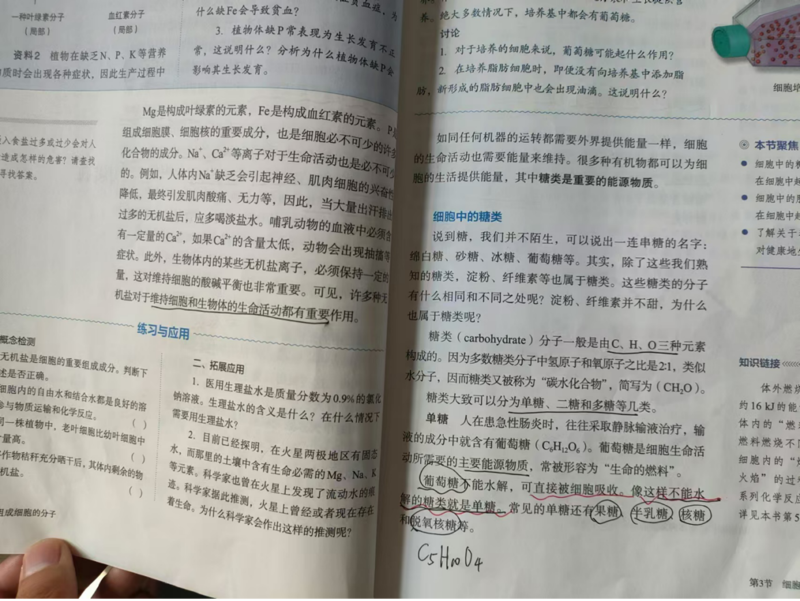 一种叶绿素分子
血红素分子
(局部)
(局部)
资料2 植物在缺乏N、P、K等营养
质时会出现各种症状，因此生产过程中
什么缺Fe会导致贫血?
3. 植物体缺P常表现为生长发育不正
常，这说明什么？分析为什么植物体缺P会
影响其生长发育。
入食盐过多或过少会对人
造成怎样的危害？请查找
寻找答案。
Mg是构成叶绿素的元素，Fe是构成血红素的元素。P是
组成细胞膜、细胞核的重要成分，也是细胞必不可少的许多
化合物的成分。Na⁺、Ca²⁺等离子对于生命活动也是必不可少
的。例如，人体内Na⁺缺乏会引起神经、肌肉细胞的兴奋性
降低，最终引发肌肉酸痛、无力等，因此，当大量出汗排出
过多的无机盐后，应多喝淡盐水。哺乳动物的血液中必须含
有一定量的Ca²⁺，如果Ca²⁺的含量太低，动物会出现抽搐等
症状。此外，生物体内的某些无机盐离子，必须保持一定的
量，这对维持细胞的酸碱平衡也非常重要。可见，许多种无
机盐对于维持细胞和生物体的生命活动都有重要作用。
练习与应用
概念检测
无机盐是细胞的重要组成成分。判断下
述是否正确。
细胞内的自由水和结合水都是良好的溶
参与物质运输和化学反应。 ( )
同一株植物中，老叶细胞比幼叶细胞中
量高。 ( )
作物秸秆充分晒干后，其体内剩余的物
机盐。 ( )
组成细胞的分子
二、拓展应用
1. 医用生理盐水是质量分数为0.9%的氯化
钠溶液。生理盐水的含义是什么？在什么情况下
需要用生理盐水?
2. 目前已经探明，在火星两极地区有固态
水，而那里的土壤中含有生命必需的Mg、Na、K
等元素。科学家也曾在火星上发现了流动水的痕
迹。科学家据此推测，火星上曾经或者现在存在
着生命。为什么科学家会作出这样的推测呢?
养。绝大多数情况下，培养基中都会有葡萄糖。
讨论
1. 对于培养的细胞来说，葡萄糖可能起什么作用?
2. 在培养脂肪细胞时，即使没有向培养基中添加脂
肪，新形成的脂肪细胞中也会出现油滴。这说明什么?
细胞培
如同任何机器的运转都需要外界提供能量一样，细胞
的生命活动也需要能量来维持。很多种有机物都可以为细
胞的生活提供能量，其中糖类是重要的能源物质。
细胞中的糖类
说到糖，我们并不陌生，可以说出一连串糖的名字：
绵白糖、砂糖、冰糖、葡萄糖等。其实，除了这些我们熟
知的糖类，淀粉、纤维素等也属于糖类。这些糖类的分子
有什么相同和不同之处呢？淀粉、纤维素并不甜，为什么
也属于糖类呢?
糖类（carbohydrate）分子一般是由C、H、O三种元素
构成的。因为多数糖类分子中氢原子和氧原子之比是2:1，类似
水分子，因而糖类又被称为“碳水化合物”，简写为（CH₂O）。
糖类大致可以分为单糖、二糖和多糖等几类。
单糖 人在患急性肠炎时，往往采取静脉输液治疗，输
液的成分中就含有葡萄糖（C₆H₁₂O₆）。葡萄糖是细胞生命活
动所需要的主要能源物质，常被形容为“生命的燃料”。
葡萄糖不能水解，可直接被细胞吸收。像这样不能水
解的糖类就是单糖。常见的单糖还有果糖、半乳糖、核糖
和脱氧核糖等。
C₅H₁₀O₄
本节聚焦
细胞中的
在细胞中起
细胞中的
在细胞中起
了解关于
对健康地
知识链接
体外燃
约16 kJ的能
体内的“燃
燃料燃烧不
细胞内的“
火焰”的过
系列化学反应
详见本书第5
第3节 细胞